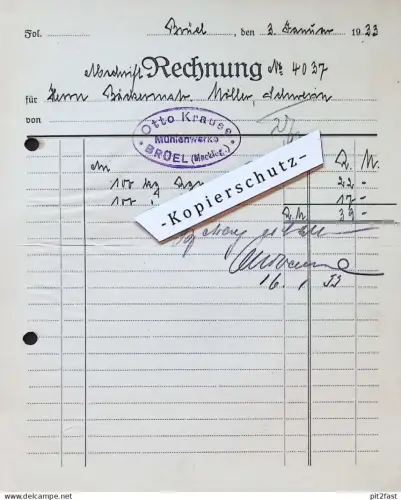 Fol. Brüel, den 3. Januar 1933
Abschrift Rechnung No 4037
für Herrn Bäckermstr. Möller, Schwerin
von
Otto Krause
Mühlenwerke
BRÜEL (Mecklbg.)
-Kopierschutz-
An R. M.
100 kg 22 -
100 " 17 -
R.M. 39 -
16. 1. 33
www.delcampe.net
pit2fast